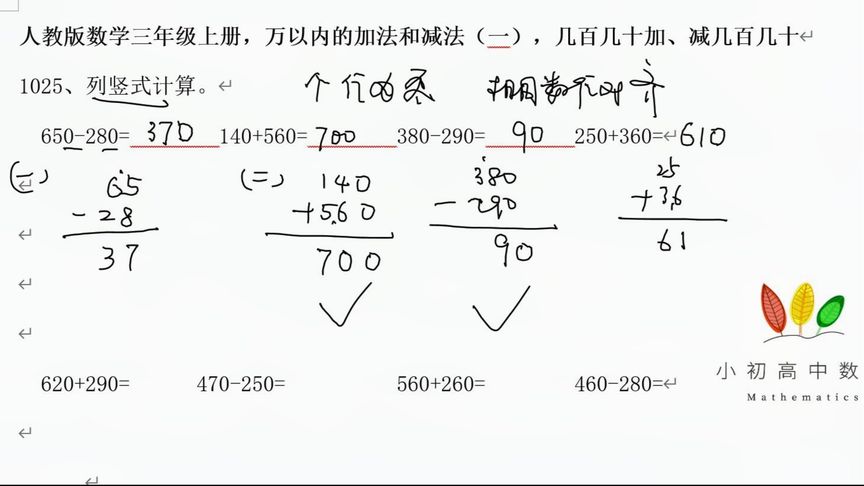 人教版数学三年级上册，万以内的加法和减法（一），几百几十加、减几百几十
1025、列竖式计算。 个位为0 相同数位对齐
650-280=370 140+560=700 380-290=90 250+360=610
(一) 65 (二) 140 380 25
-28 +560 -290 +36
37 700 90 61
620+290= 470-250= 560+260= 460-280=
小初高中数
Mathematics